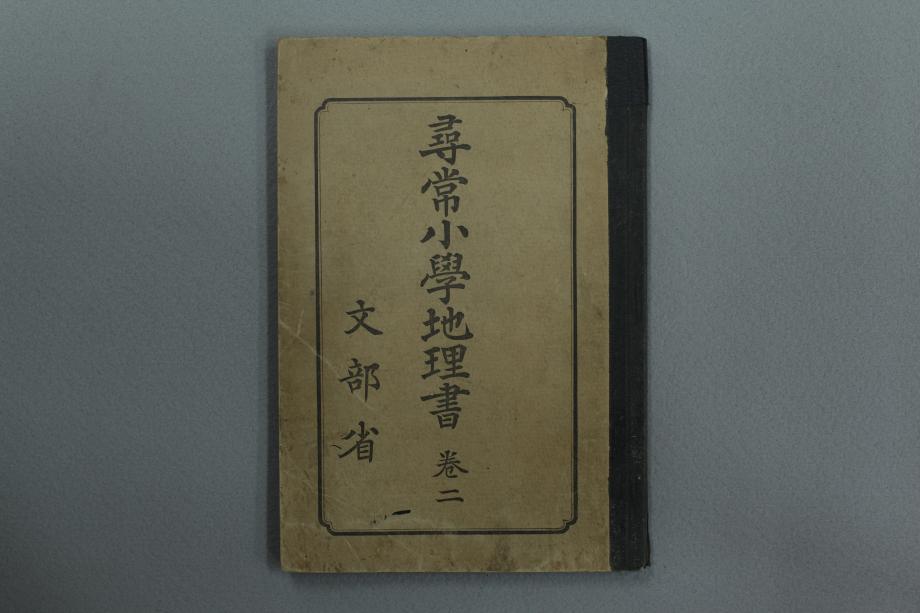 尋常小學地理書 卷二
文部省